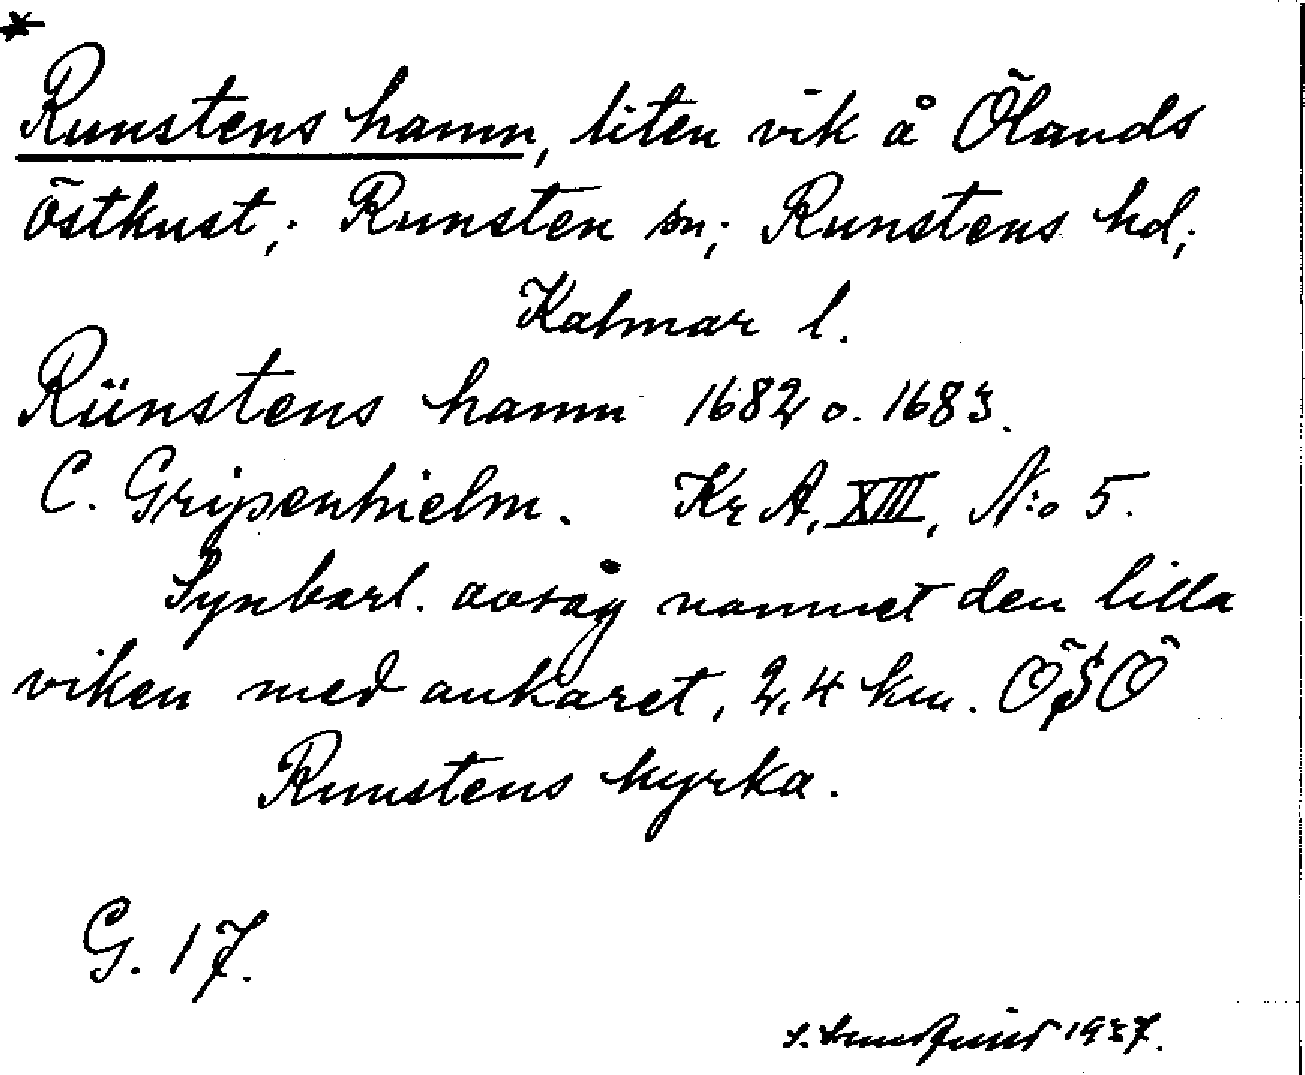 *
Runstens hamn, liten vik å Ölands
östkust; Runsten sn; Runstens hd;
Kalmar l.
Rünstens hamn 1682 o. 1683.
C. Gripenhielm. Kr A, XIII, N:o 5.
Synbarl. avsåg namnet den lilla
viken med ankaret, 2,4 km. ÖSÖ
Runstens kyrka.
G. 17.
1937.